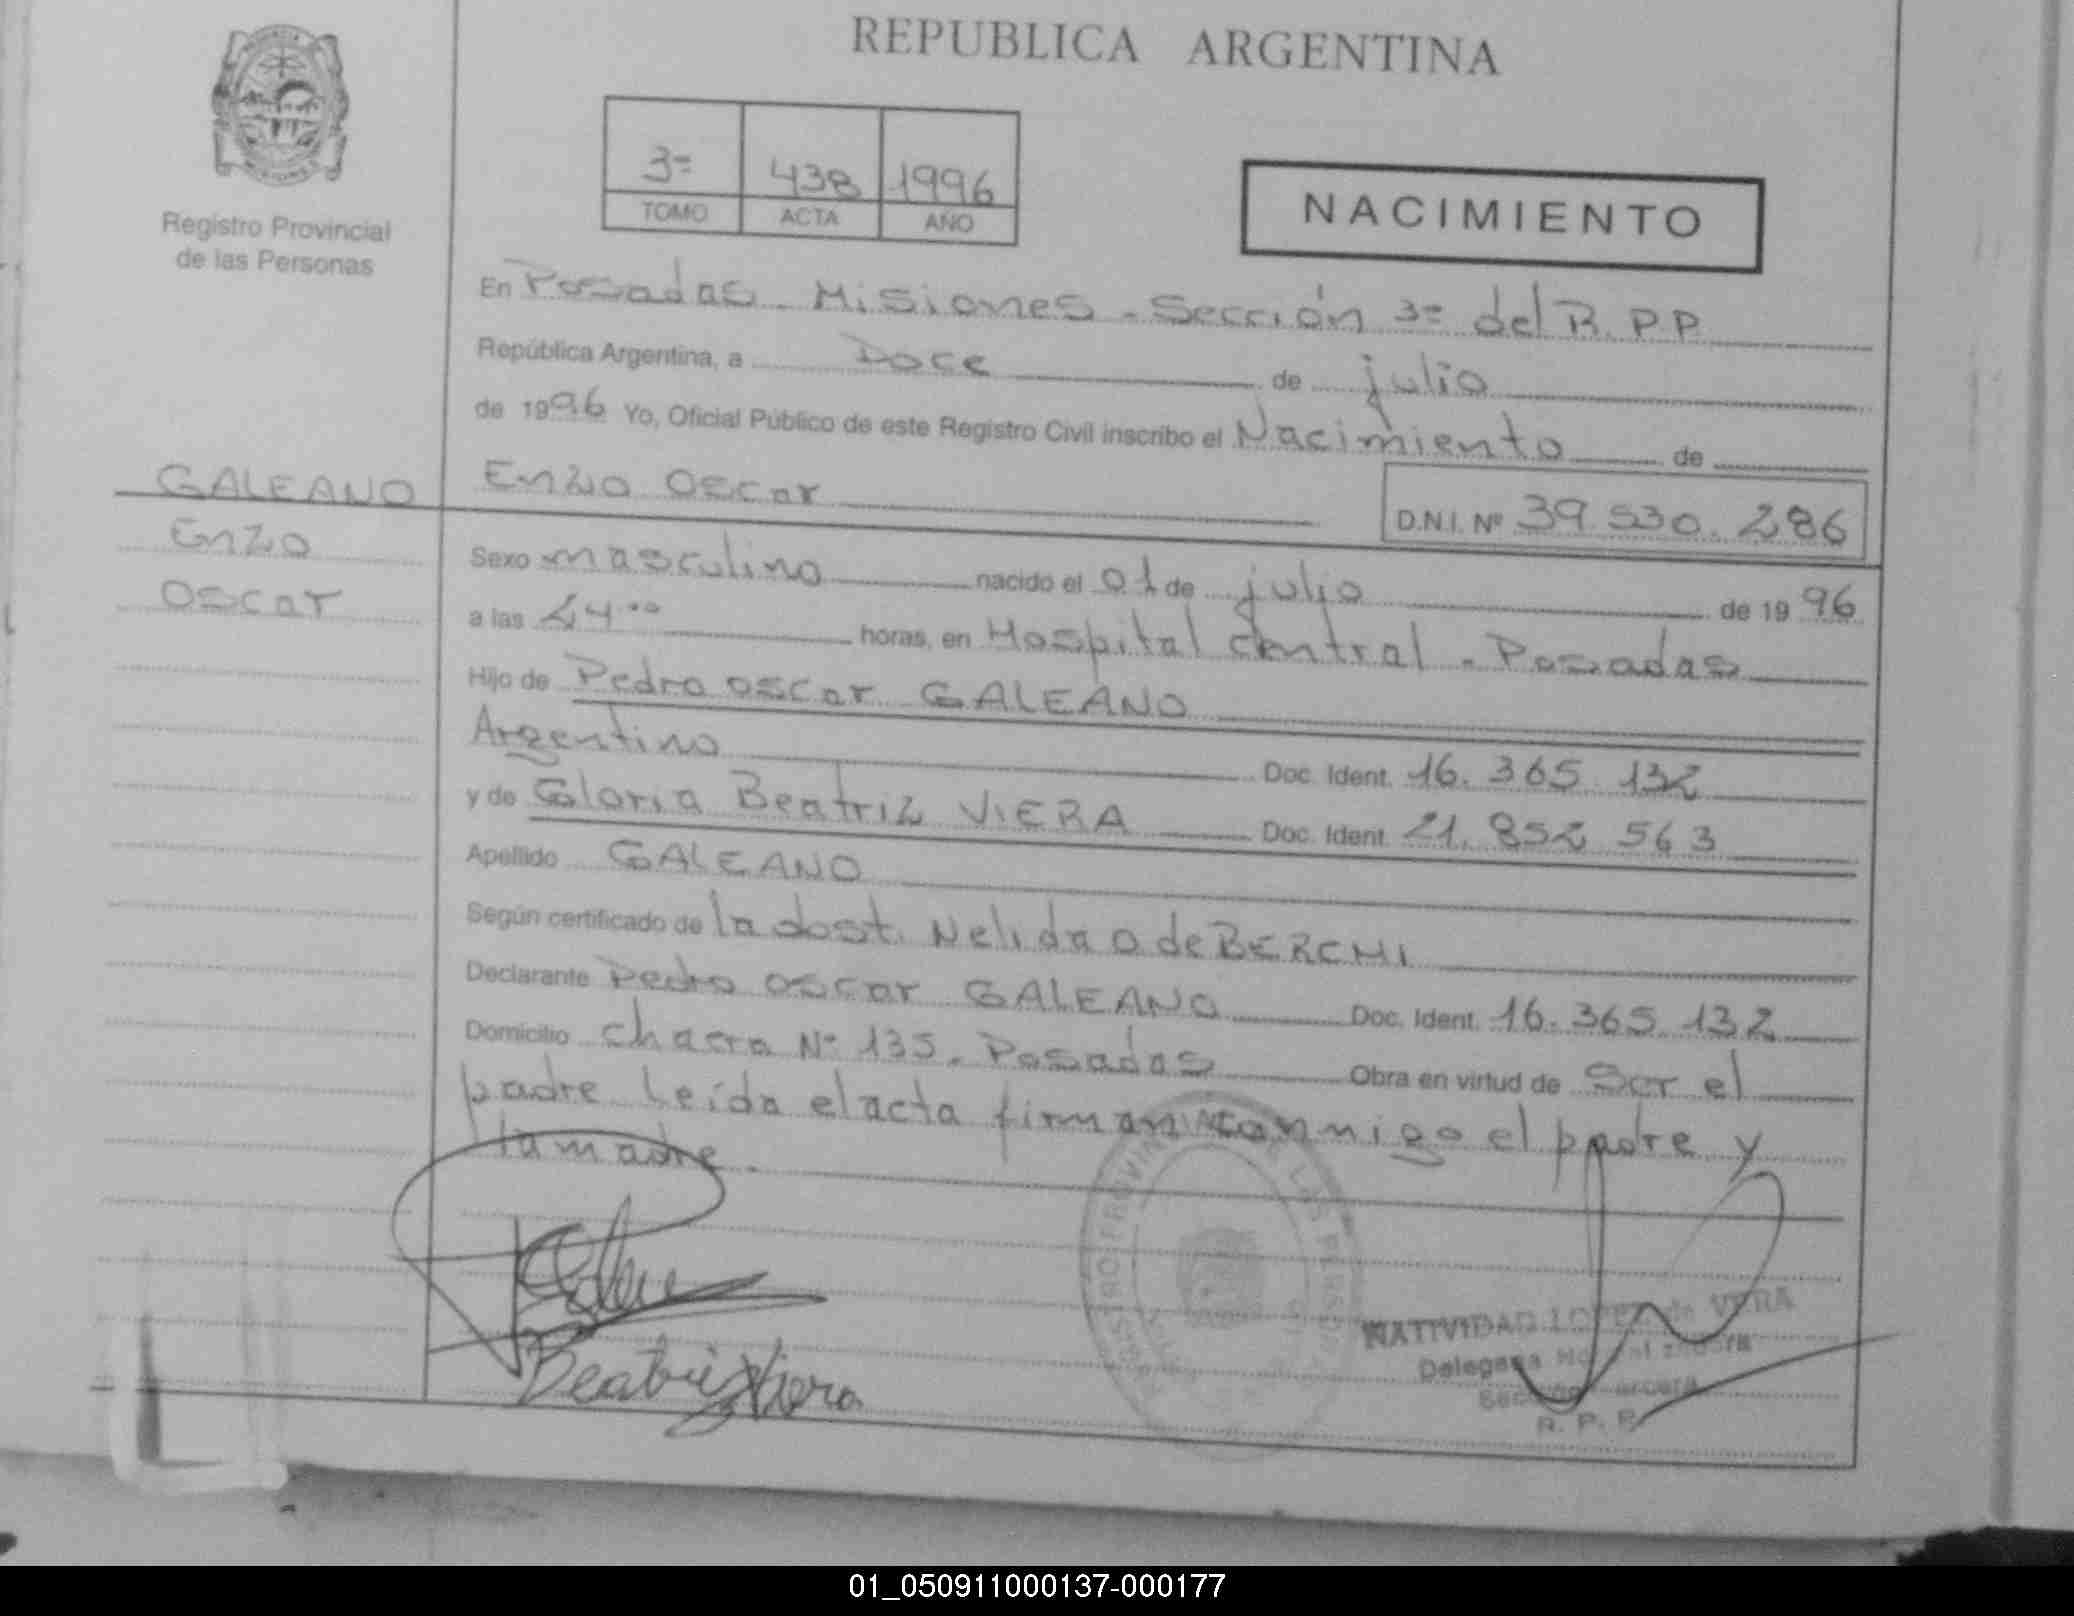 REPUBLICA ARGENTINA
Registro Provincial
de las Personas
3=
438
1996
TOMO
ACTA
AÑO
NACIMIENTO
En Posadas - Misiones - Sección 3= del R.P.P
República Argentina, a Doce de julio
de 1996 Yo, Oficial Público de este Registro Civil inscribo el Nacimiento de
GALEANO
Enzo
Oscar
Enzo Oscar
D.N.I. Nº 39.530.286
Sexo masculino nacido el 01 de julio de 1996
a las 24 00 horas, en Hospital Central - Posadas
Hijo de Pedro Oscar GALEANO
Argentino Doc. Ident. 16.365.132
y de Gloria Beatriz VIERA Doc. Ident. 21.852 563
Apellido GALEANO
Según certificado de la obst. Nelida O de BERCHI
Declarante Pedro Oscar GALEANO Doc. Ident. 16.365.132
Domicilio Chacra Nº 135. Posadas Obra en virtud de Ser el
padre Leída el acta firman conmigo el padre y
la madre.
Beatriz Viera
NATIVIDAD LOPEZ de VERA
Delegada
R. P. P.
01_050911000137-000177